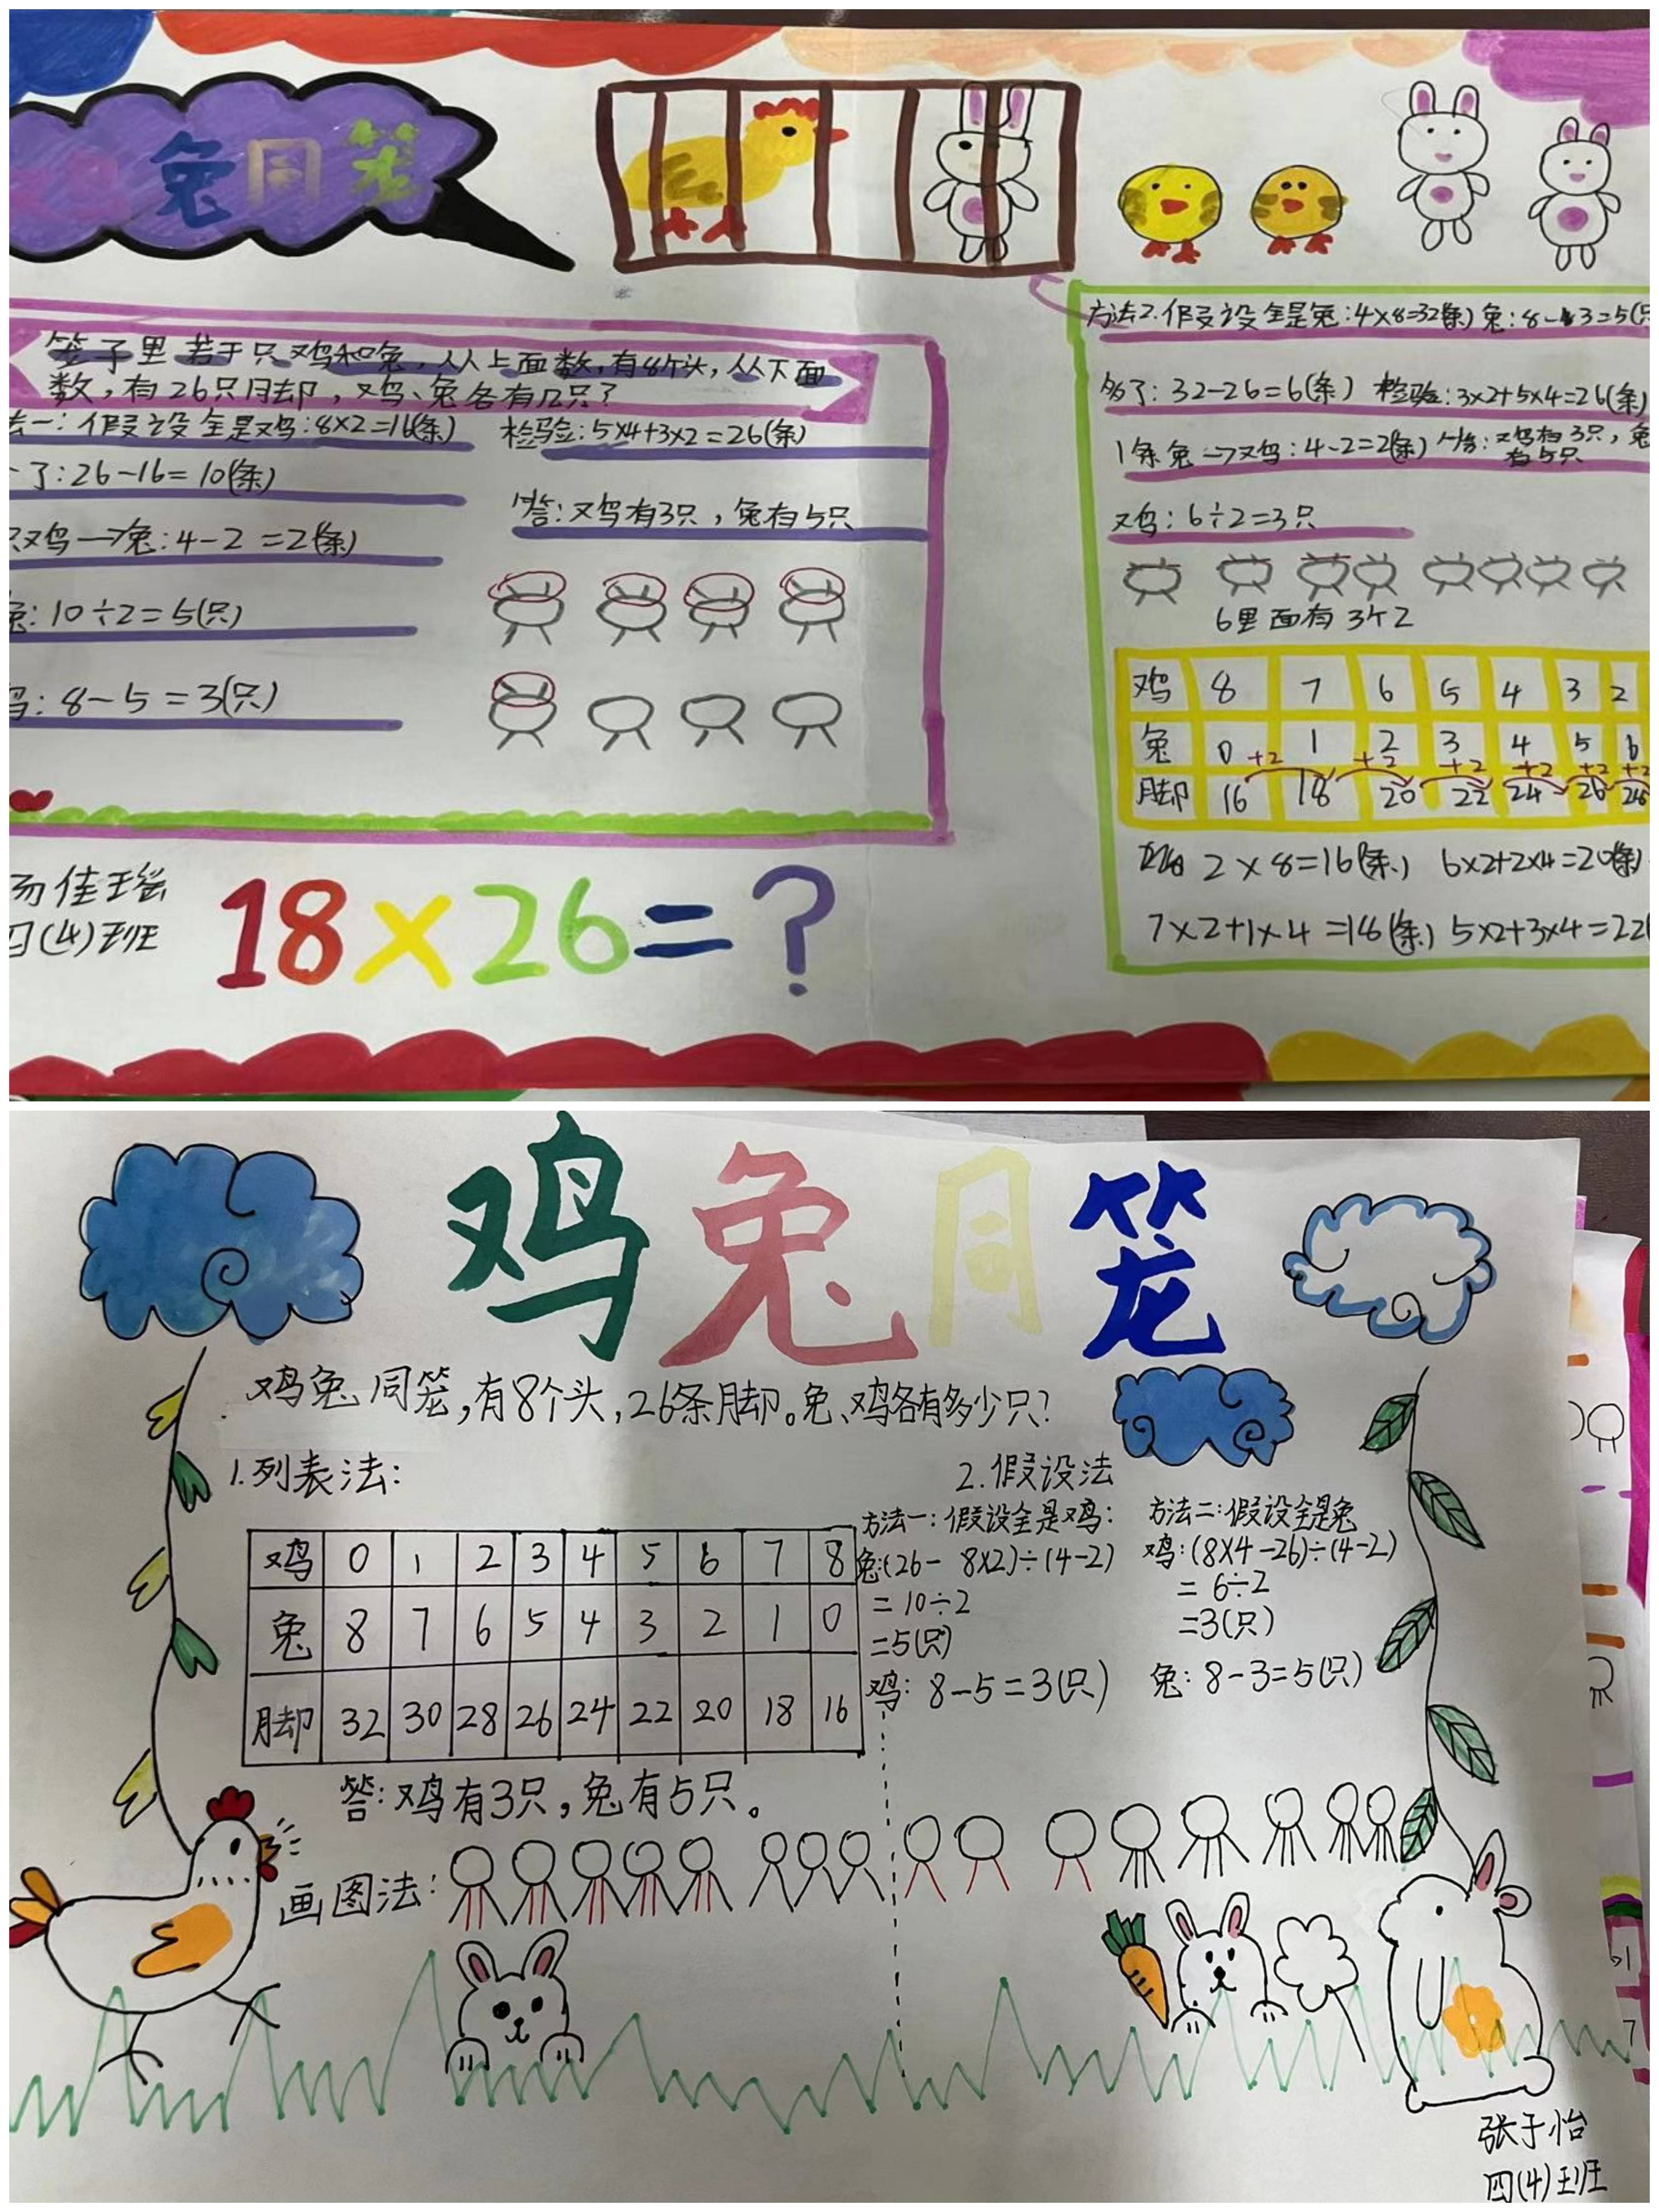 兔同笼
笼子里若于只鸡和兔,从上面数,有8个头,从下面
数,有26只脚,鸡、兔各有几只?
法一:假设全是鸡:8×2=16(条)
检验:5×4+3×2=26(条)
了:26-16=10(条)
答:鸡有3只,兔有5只
只鸡→兔:4-2=2(条)
兔:10÷2=5(只)
鸡:8-5=3(只)
佳瑶
四(4)班
18×26=?
方法2.假设全是兔:4×8=32(条) 兔:8-3=5(只
多了:32-26=6(条) 检验:3×2+5×4=26(条)
1条兔→鸡:4-2=2(条) 答:鸡有3只,兔
有5只
鸡:6÷2=3只
6里面有3个2
鸡 8 7 6 5 4 3 2
兔 0 1 2 3 4 5 6
+2 +2 +2 +2 +2 +2
脚 16 18 20 22 24 26 28
2×8=16(条) 6×2+2×4=20(条)
7×2+1×4=18(条) 5×2+3×4=22(
鸡兔同笼
鸡兔同笼,有8个头,26条脚。兔、鸡各有多少只?
1.列表法:
鸡 0 1 2 3 4 5 6 7 8
兔 8 7 6 5 4 3 2 1 0
脚 32 30 28 26 24 22 20 18 16
答:鸡有3只,兔有5只。
2.假设法
方法一:假设全是鸡:
兔:(26-8×2)÷(4-2)
=10÷2
=5(只)
鸡:8-5=3(只)
方法二:假设全是兔
鸡:(8×4-26)÷(4-2)
=6÷2
=3(只)
兔:8-3=5(只)
画图法:
张于怡
四(4)班